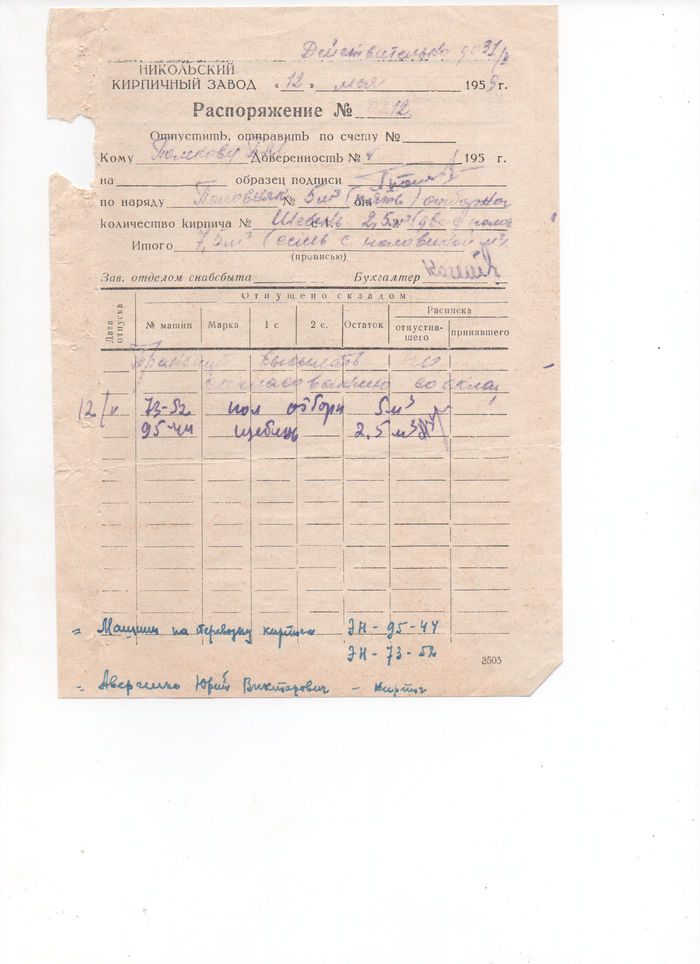 Действительно до 31/
НИКОЛЬСКИЙ
КИРПИЧНЫЙ ЗАВОД «12» мая 1959 г.
Распоряжение № 0212
Отпустить, отправить по счету №
Кому Доверенность № 195 г.
на образец подписи
по наряду Половняк № 5 м³ (пять) от отборно
количество кирпича № Щебень с. 2,5 м³ (два с полов
Итого 7,5 м³ (семь с половиной м³)
(прописью)
Зав. отделом снабсбыта Бухгалтер
Отпущено складом
Дата отпуска № машин Марка 1 с 2 с. Остаток Расписка
отпустившего принявшего
Транспорт высылать по
согласованию со склад
12/V 73-52 пол отборн 5 м³
95-44 щебень 2,5 м³
= Машины на перевозку кирпича ЭН-95-44
ЭН-73-52
3505
= Юрий Викторович - кирпич